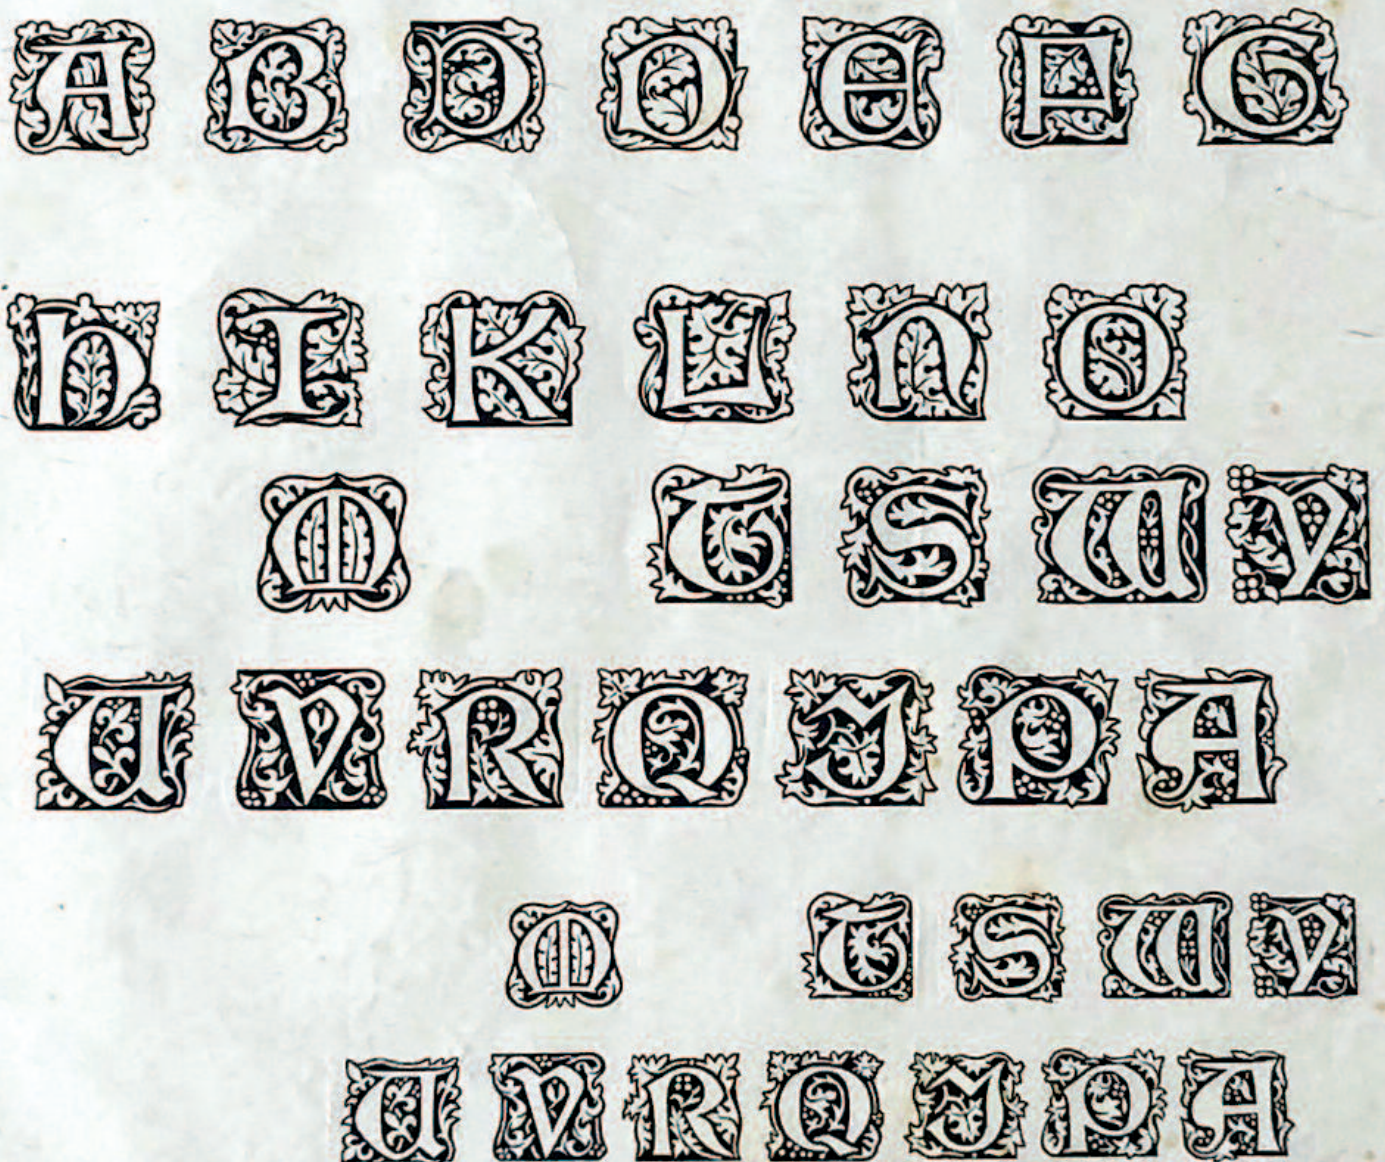 A B D D E F G
H I K L N O
M T S W Y
U V R Q J P A
M T S W Y
U V R Q J P A